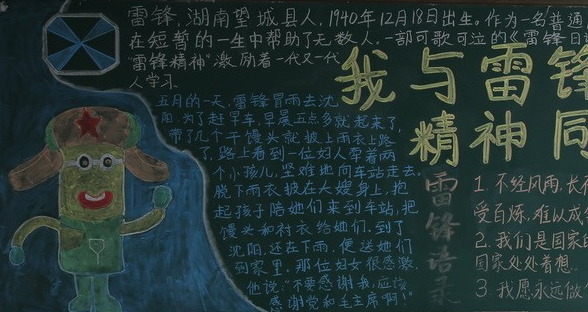 雷锋,湖南望城县人,1940年12月18日出生。作为一名普通
在短暂的一生中帮助了无数人,一部可歌可泣的《雷锋日
"雷锋精神"激励着一代又一代
人学习。
我与雷锋
精神同
五月的一天,雷锋冒雨去沈
阳,为了赶早车,早晨五点多就起来了,
带了几个干馒头就披上雨衣上路
了,路上看到一位妇人牵着两
个小孩儿,坚难地向车站走去,
脱下雨衣披在大嫂身上,抱
起孩子陪她们来到车站,把
馒头和衬衣给她们,到了
沈阳,还在下雨,便送她们
到家里,那位妇女很感激,
他说:"不要感谢我,应该
感谢党和毛主席啊!"
雷锋语录
1.不经风雨,长
受百炼,难以成
2.我们是国家的
国家处处着想
3.我愿永远做